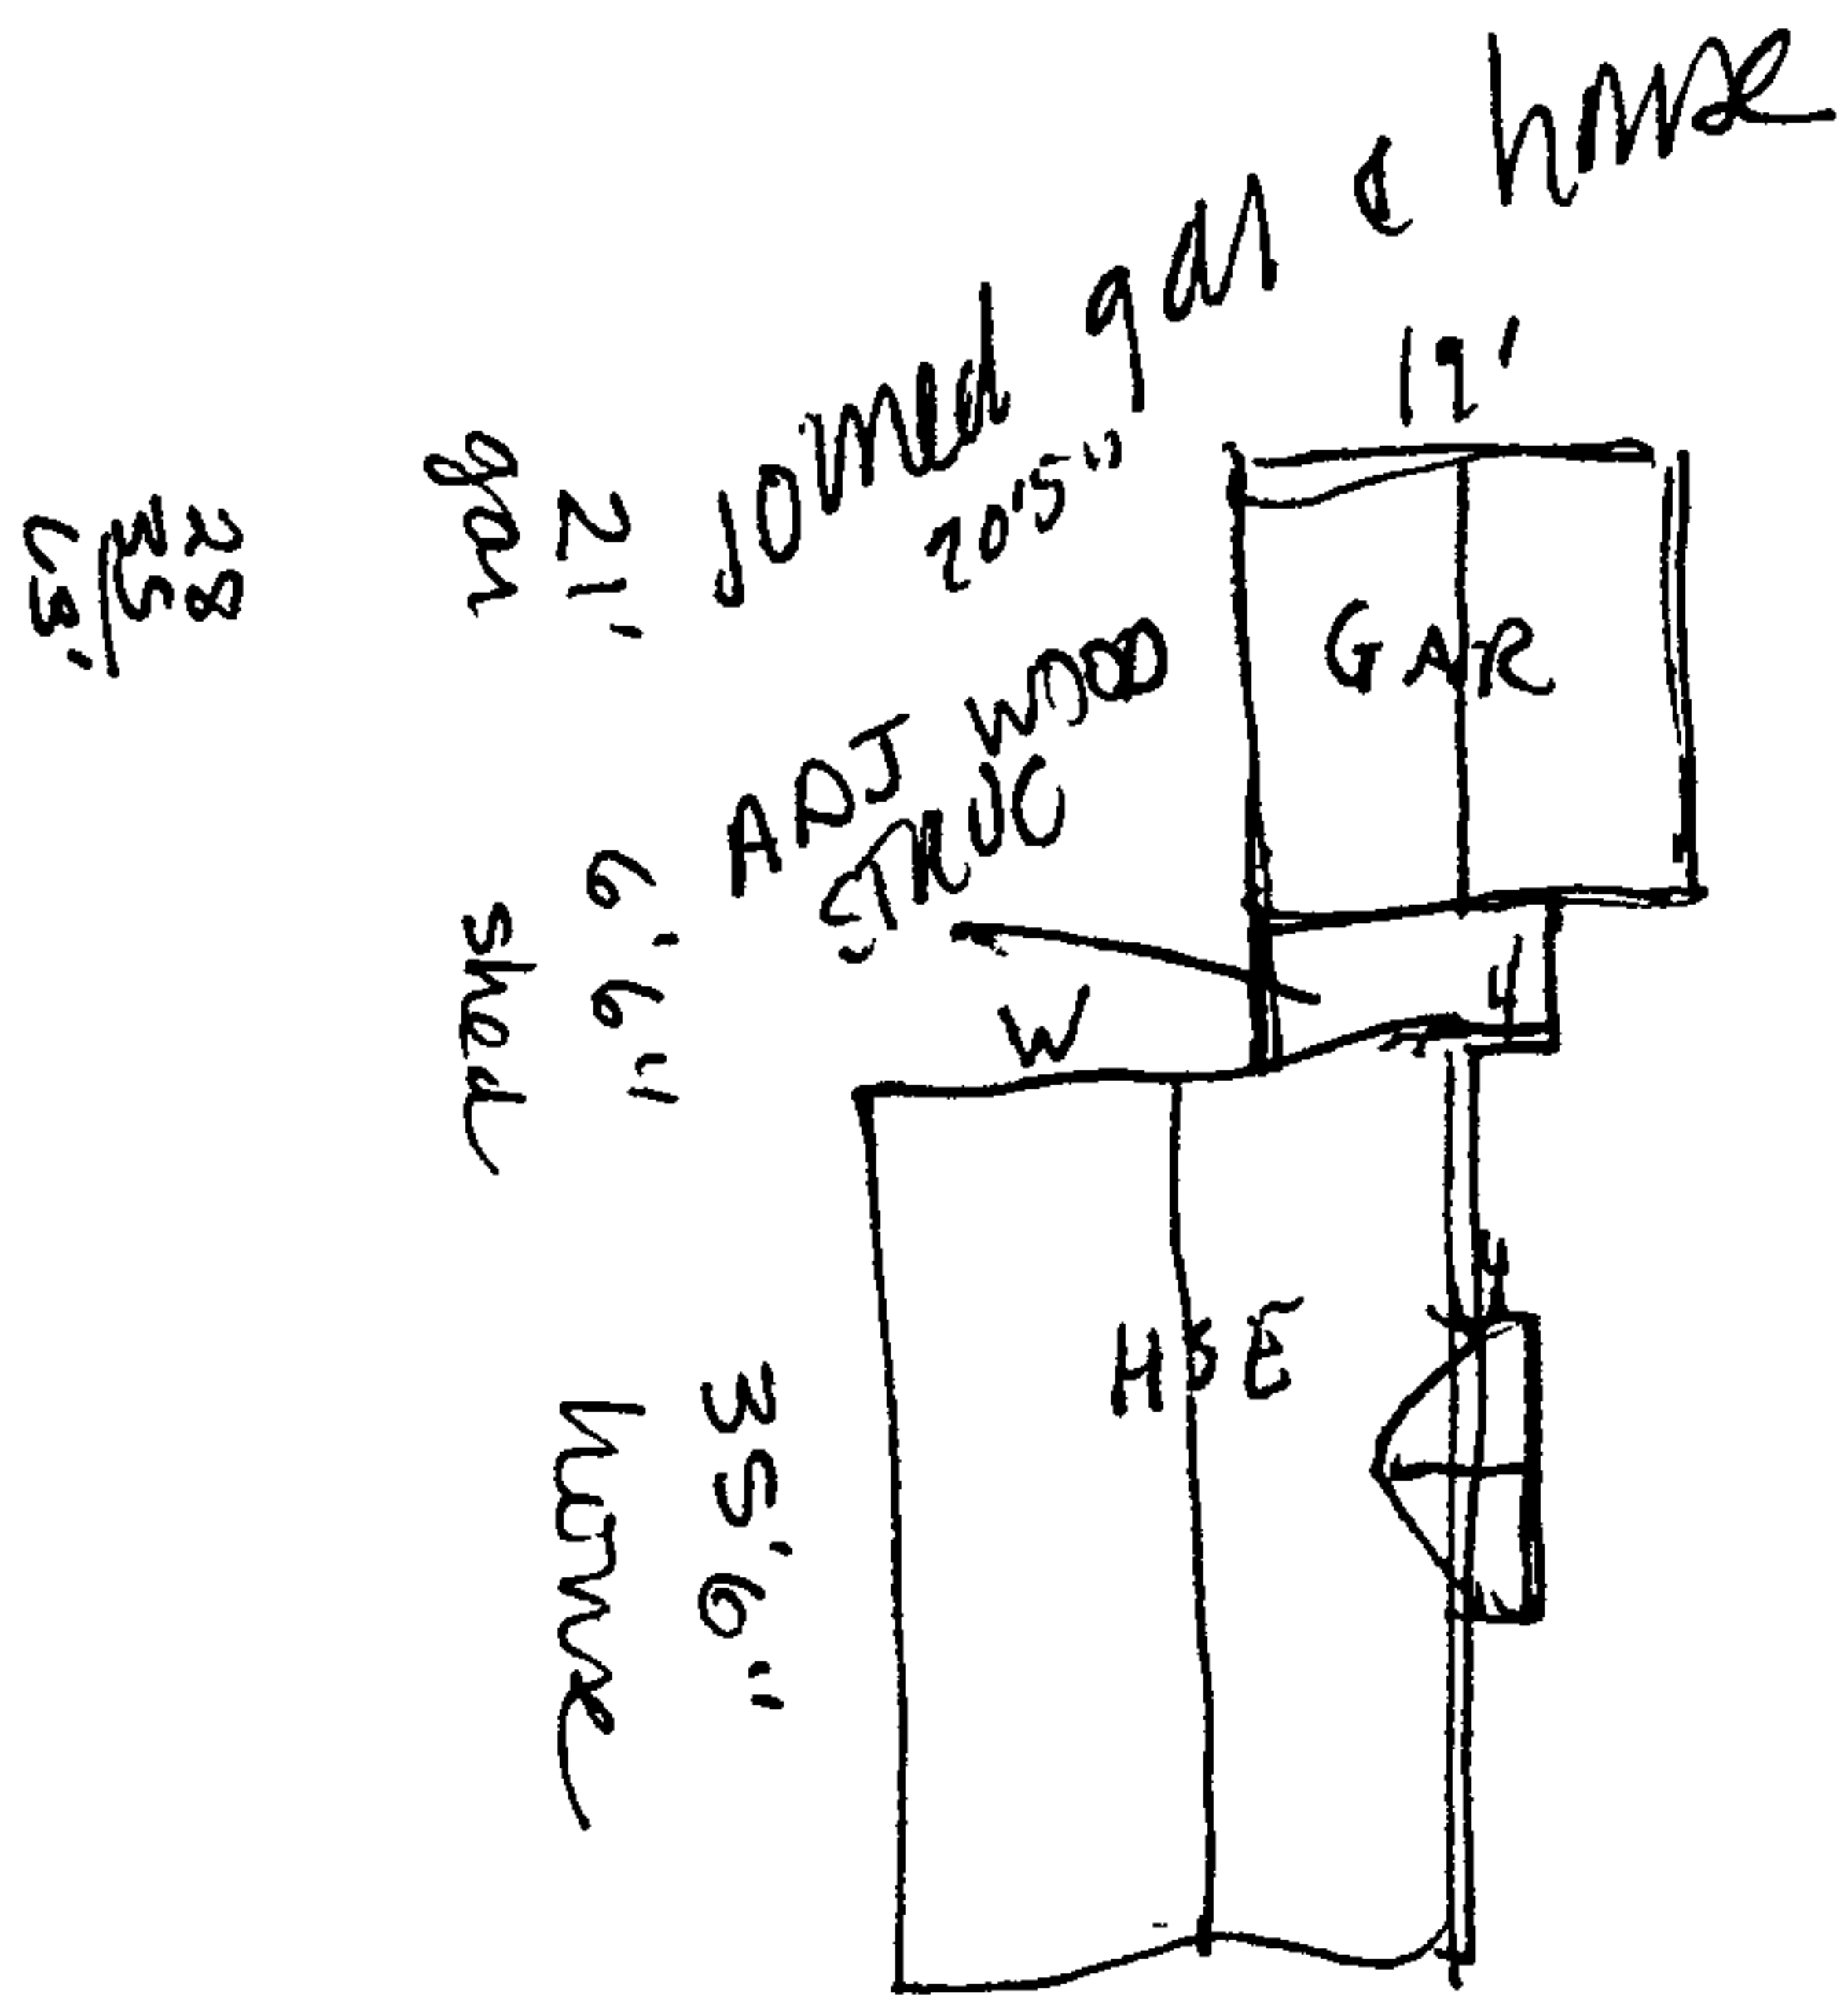 joined gar & hme
2005
19'
GAR
ADJ WOOD
STRUC
W
4
HSE
4
21'
gar
6'6"
shed
35'6"
home
28
35
63'